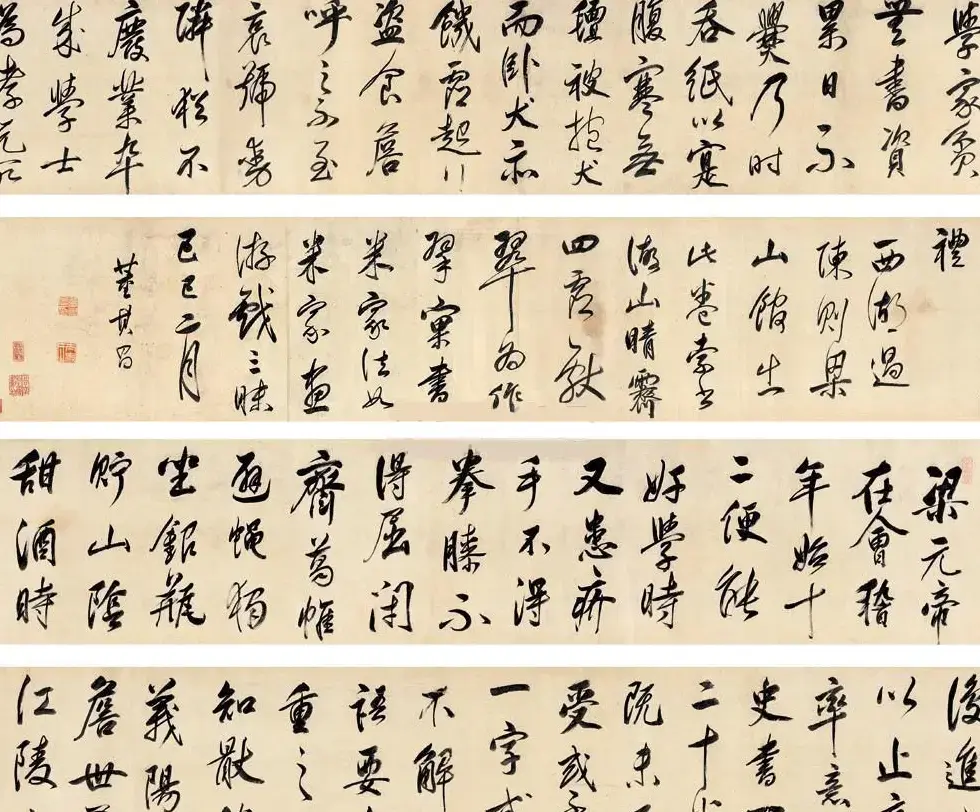 學家貧
無書資
累日不
爨乃時
吞紙以寔
腹寒無
氊被抱犬
而臥犬亦
饑虛起行
盜食詹
呼之不至
哀號動
隣猶不
廢業卒
成學士
為孝元所
禮
西湖過
陳則梁
山館出
此卷索書
山晴霽
四虛獻
翠為作
擘窠書
米家法如
米家畫
游戲三昧
己巳二月
董其昌
梁元帝
在會稽
年始十
二便能
好學時
又患疥
手不得
拳膝不
得屈閑
齊葛幃
避蠅獨
坐銀甌
貯山陰
甜酒時
後進
以止
率意
史書
二十
既未
受或
一字或
不解
語要
重之
知猒
義陽
詹世
江陵